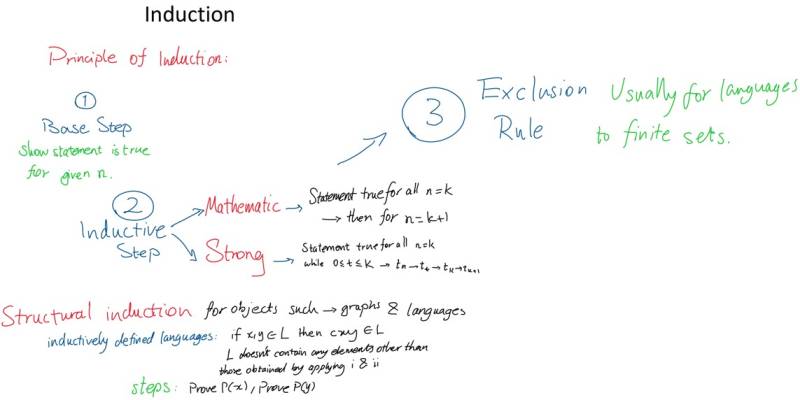 Induction
Principle of Induction:
1
Base Step
Show statement is true
for given n.
2
Inductive
Step
Mathematic → Statement true for all n=k
→ then for n=k+1
Strong → Statement true for all n=k
while 0≤t≤k → tn→t+→tk→tk+1
3 Exclusion
Rule
Usually for languages
to finite sets.
Structural induction for objects such → graphs & languages
inductively defined languages: if x,y∈L then cxy∈L
L doesn't contain any elements other than
those obtained by applying i & ii
steps: Prove P(x), Prove P(y)